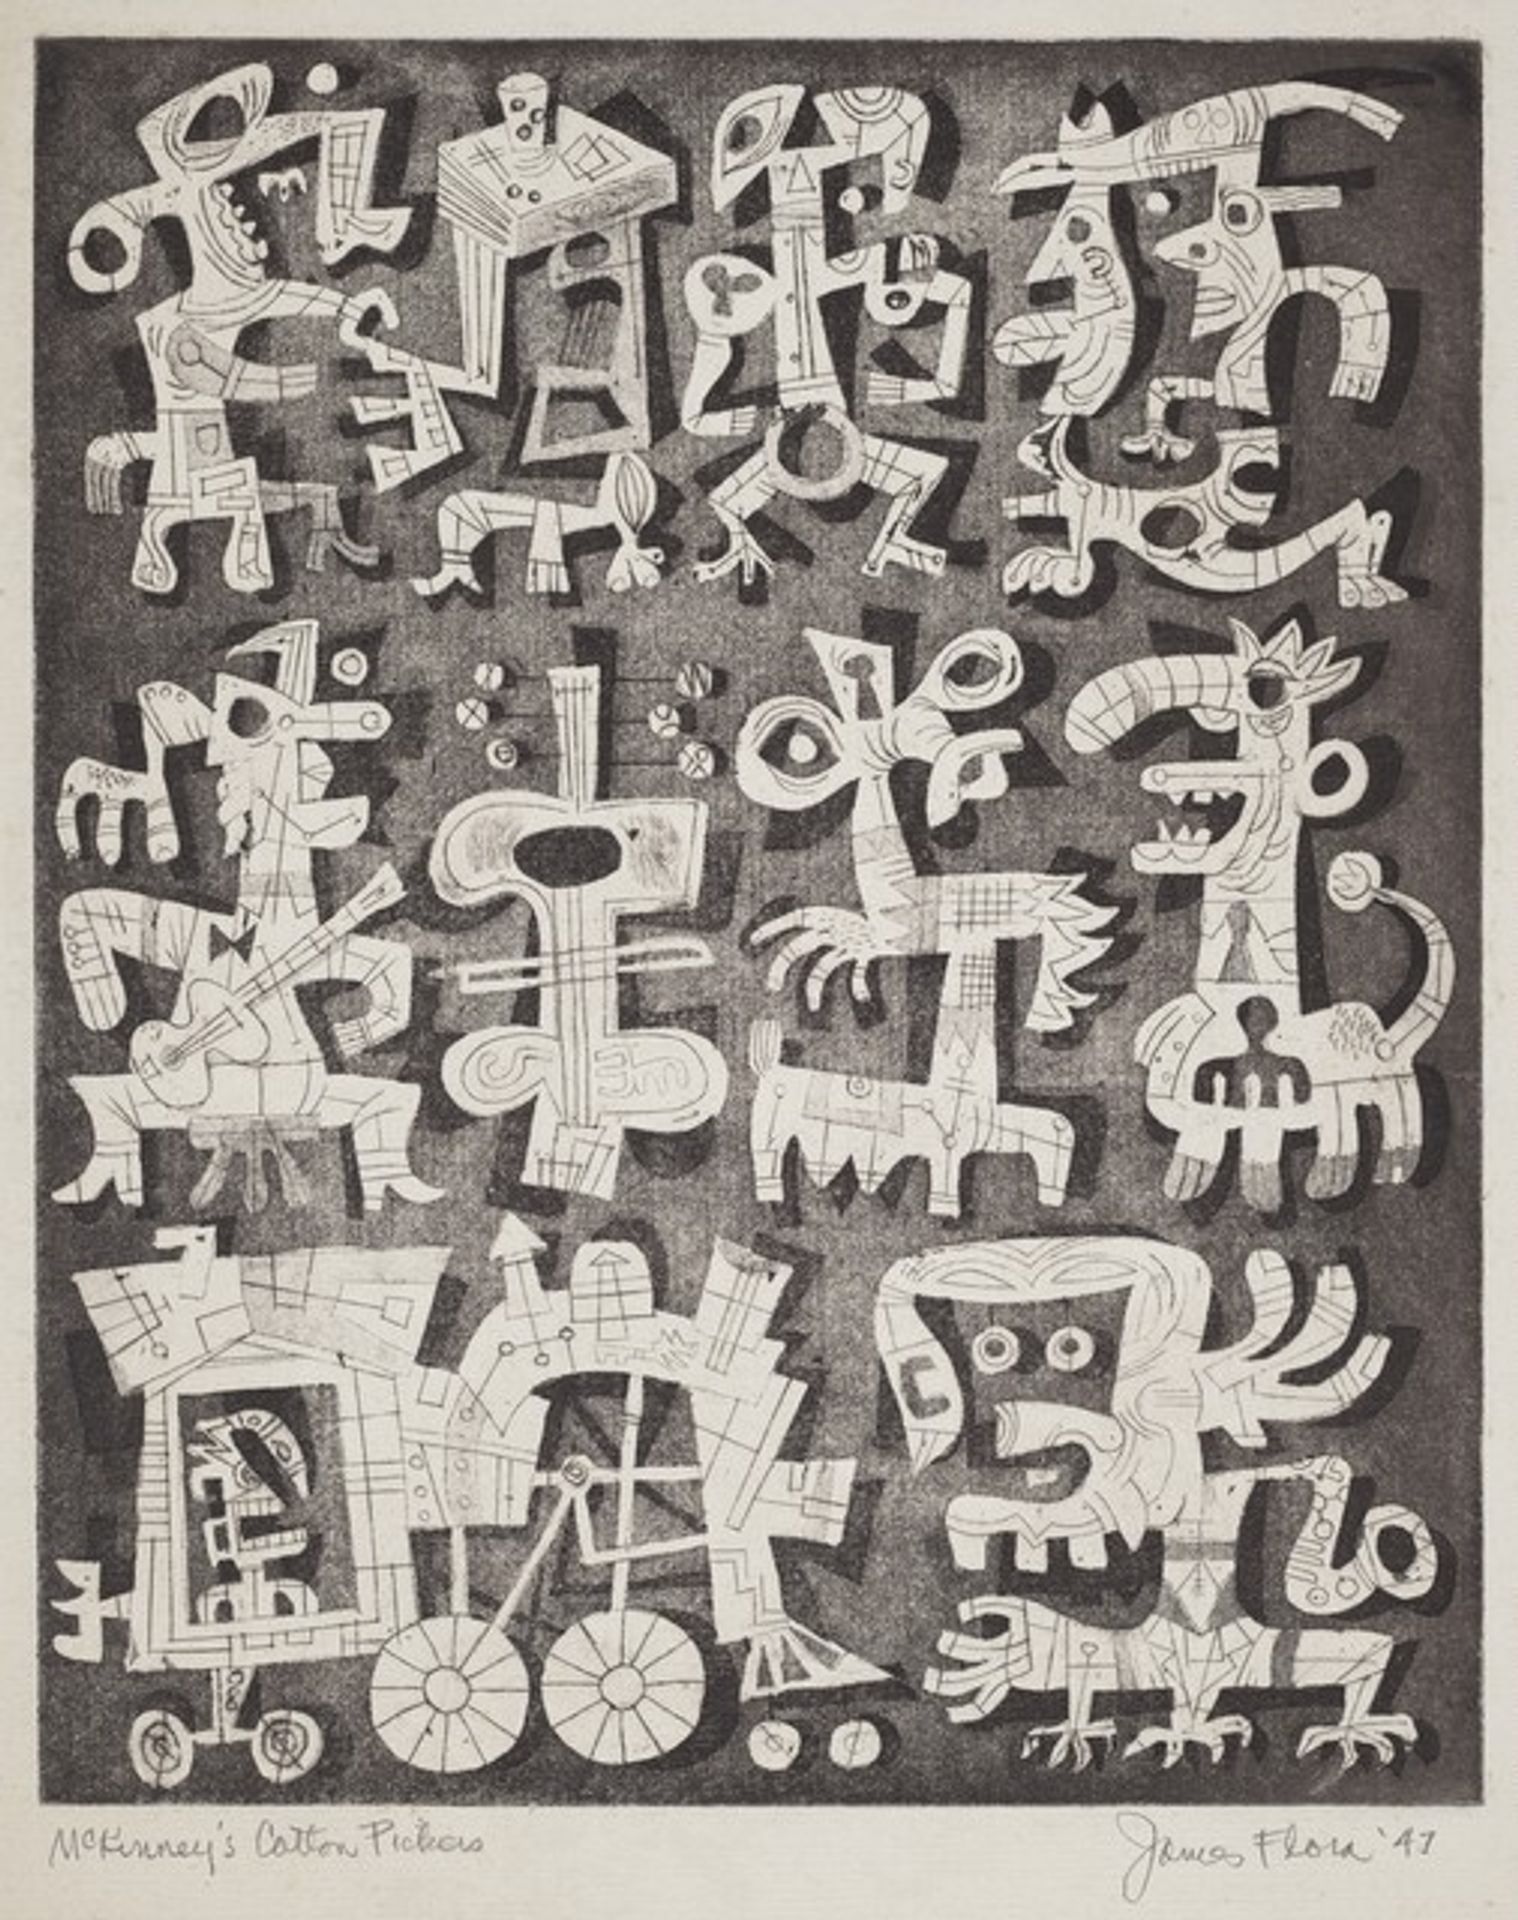 McKinney's Cotton Pickers
James Flora '47